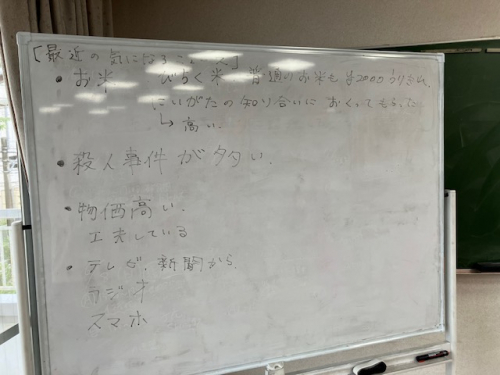 [最近の気になるニュース]
・お米 びちく米 普通のお米も ¥2000
にいがたの知り合いに おくってもらった
↳ 高い.
・殺人事件が多い.
・物価高い.
工夫している
・テレビ、新聞から.
ラジオ
スマホ